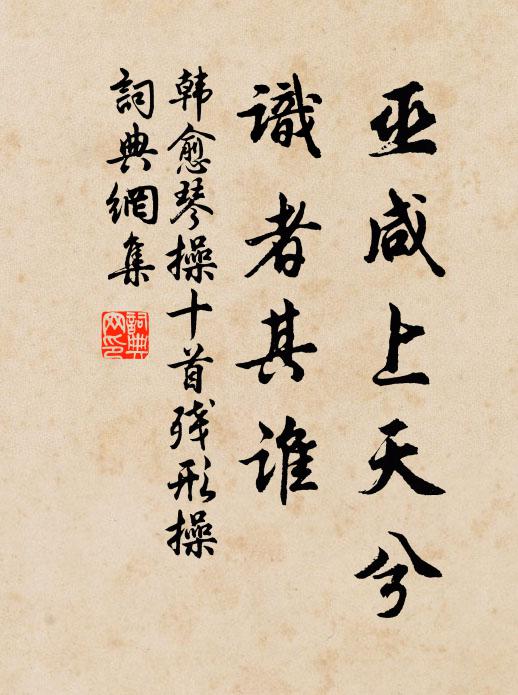 巫咸上天兮
識者其誰
韩愈琴操十首残形操
詞典網集
詞典網印